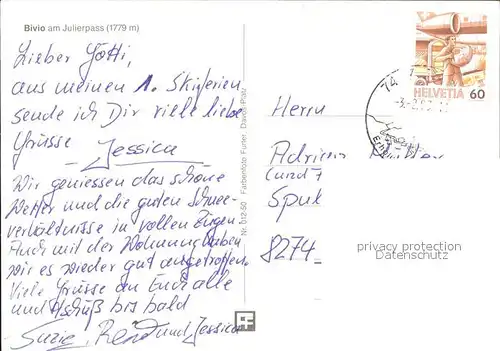 Bivio am Julierpass (1779 m)
Lieber Götti,
aus meinen 1. Skiferien
sende ich Dir viele liebe
Grüsse
Jessica
Wir geniessen das schöne
Wetter und die guten Schnee-
verhältnisse in vollen Zügen.
Auch mit der Wohnung haben
wir es wieder gut angetroffen.
Viele Grüsse an Euch alle
und tschüß bis bald
Suzie, René und Jessica
Nr. 012-50 Farbenfoto Furter, Davos-Platz
HELVETIA 60
Herrn
Adrian
8274
privacy protection
Datenschutz